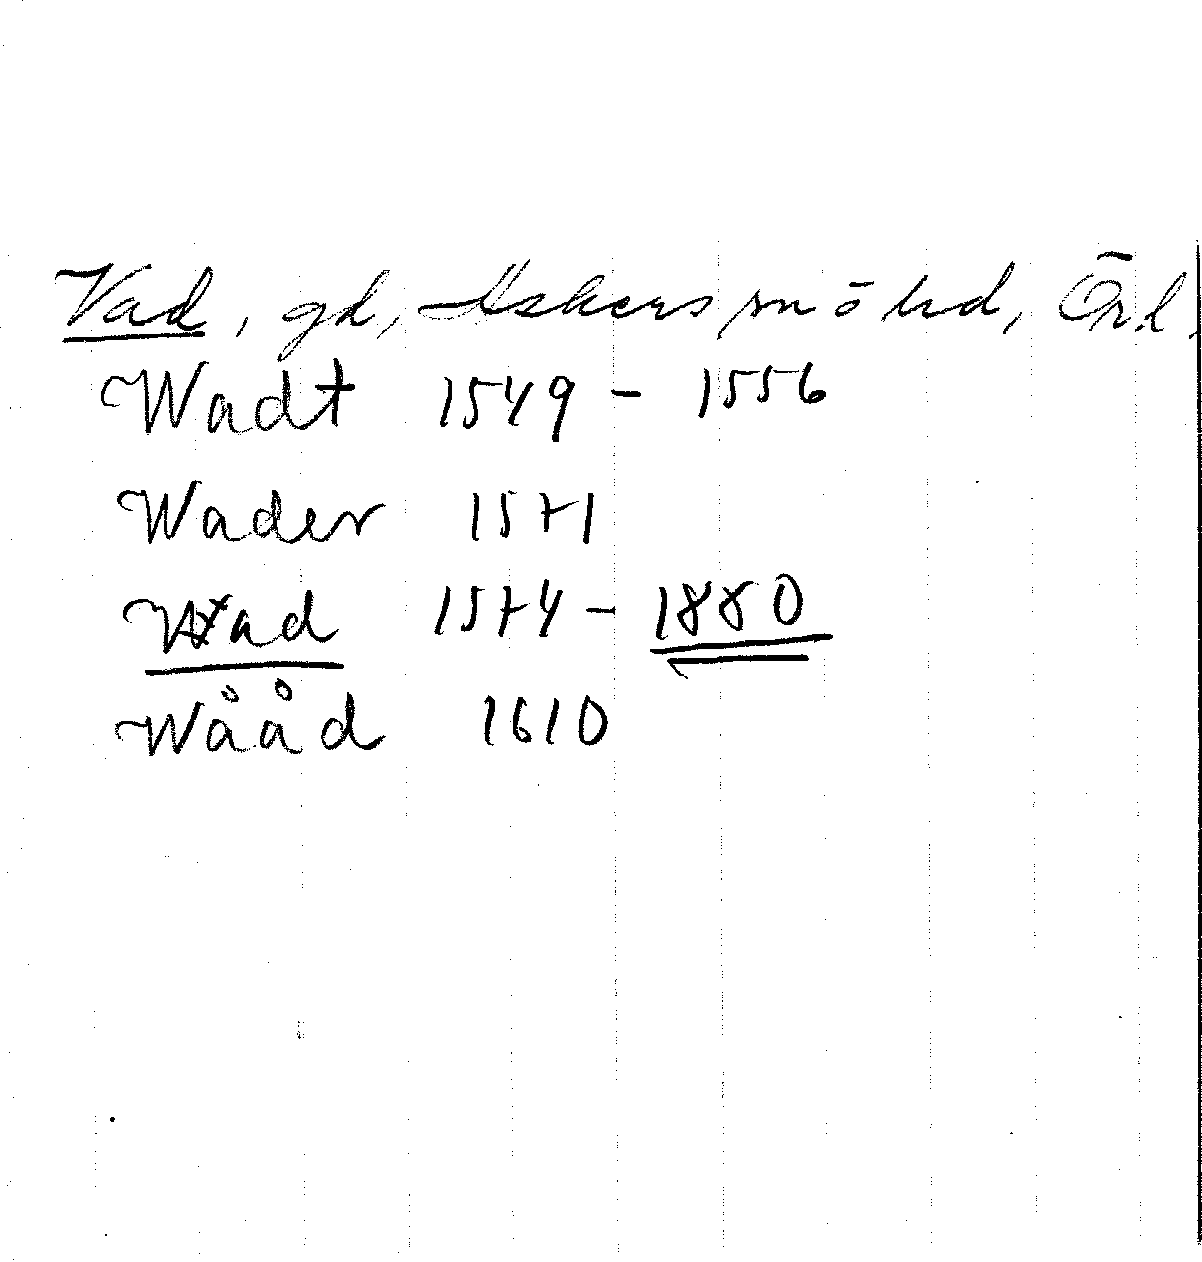 Vad, gd, Askers sn ö hd, Örl.
Wadt 1549 - 1556
Wader 1571
Wad 1574 - 1880
Wååd 1610